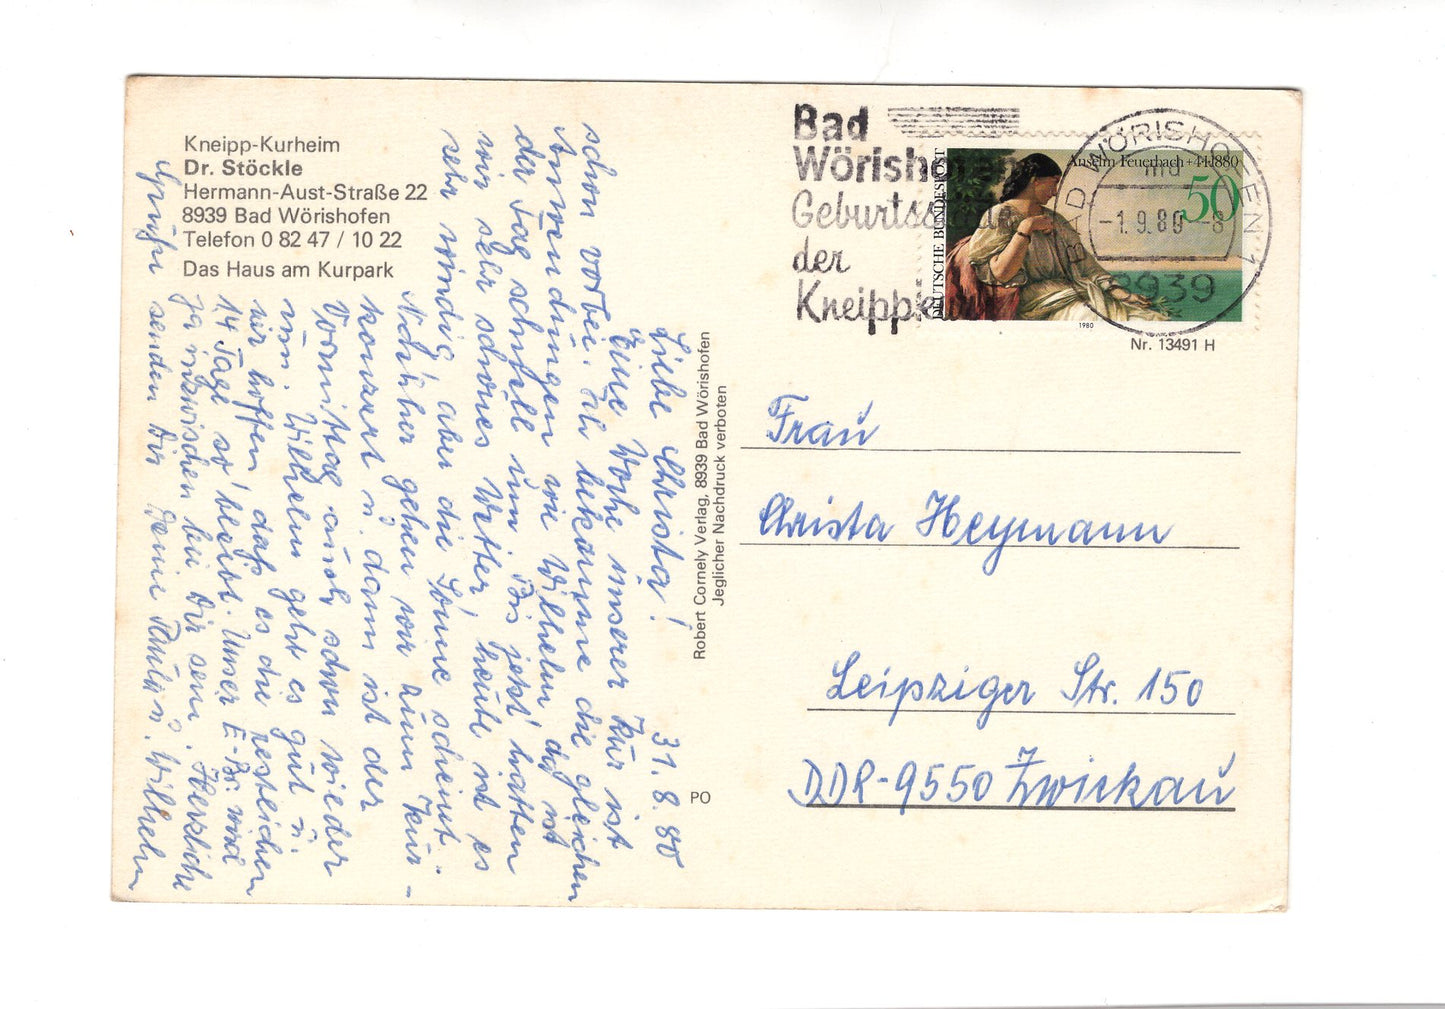 Kneipp-Kurheim
Dr. Stöckle
Hermann-Aust-Straße 22
8939 Bad Wörishofen
Telefon 0 82 47 / 10 22
Das Haus am Kurpark
31. 8. 80
Liebe Christa!
Eine Woche unserer Kur ist
schon vorbei. Ich bekomme die gleichen
Anwendungen wie Wilhelm, da ist
der Tag schnell um. Bis jetzt hatten
wir sehr schönes Wetter, heute ist es
sehr windig, aber die Sonne scheint.
Nachher gehen wir zum Kur-
konzert u. dann ist der
Vormittag auch schon wieder
um. Wilhelm geht es gut u.
wir hoffen, daß es die restlichen
14 Tage so bleibt. Unser E-Br. wird
ja inzwischen bei Dir sein. Herzliche
Grüße senden Dir Deine Paula u. Wilhelm
Robert Cornely Verlag, 8939 Bad Wörishofen
Jeglicher Nachdruck verboten
PO
Bad
Wörishofen
Geburtsstätte
der
Kneippkur
DEUTSCHE BUNDESPOST
Anselm Feuerbach + 4.1.1880
50
1980
BAD WÖRISHOFEN 1
md
-1.9.80--8
8939
Nr. 13491 H
Frau
Christa Heymann
Leipziger Str. 150
DDR-9550 Zwickau